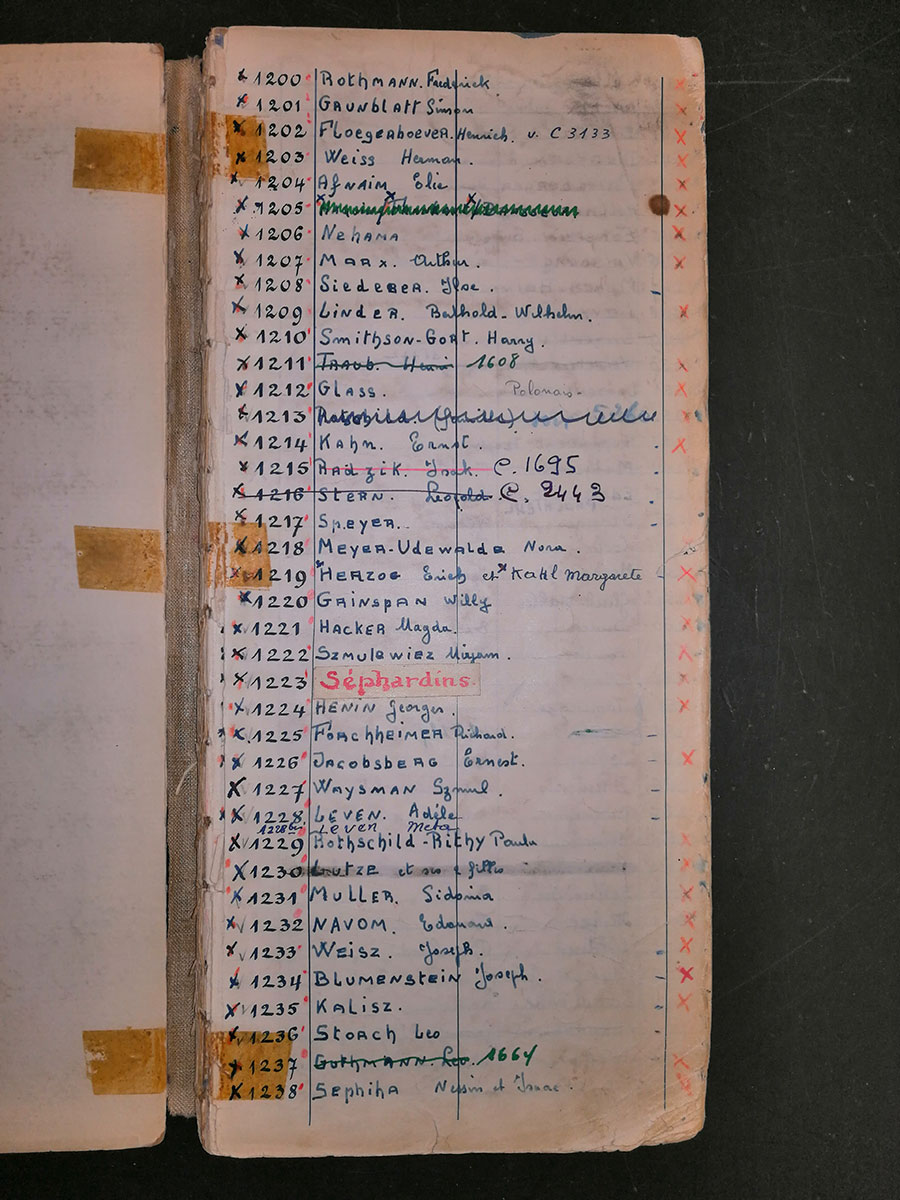 x 1200 Rothmann. Frederick
x 1201 Grunblatt Simon
x 1202 Floegerhoever. Henrich. v. C 3133
x 1203 Weiss Herman.
x 1204 Afnaim Elie
x 1205
x 1206 Nehama
x 1207 Marx. Arthur.
x 1208 Siedeber. Ilse.
x 1209 Linder. Berthold-Wilhelm.
x 1210 Smithson-Gort. Harry.
x 1211 Traub. Henri 1608
x 1212 Glass. Polonais-
x 1213 Rotschild.
x 1214 Kahn. Ernst.
x 1215 Radzik. Isak. C. 1695
x 1216 Stern. Leopold C. 2443
x 1217 Speyer.
x 1218 Meyer-Udewalde Nora.
x 1219 Herzog Erich et Kahl Margarete
x 1220 Grinspan Willy
x 1221 Hacker Magda.
x 1222 Szmulewiez Mirjam.
x 1223 Séphardins
x 1224 Henin Georges.
x 1225 Forchheimer Richard.
x 1226 Jacobsberg Ernest.
x 1227 Waysman Szmul.
x 1228 Leven. Adèle
1228 bis Leven Meta
x 1229 Rothschild-Rithy Paula
x 1230 Lutze et ses 2 filles
x 1231 Muller. Sidonia
x 1232 Navom. Edouard
x 1233 Weisz. Joseph.
x 1234 Blumenstein Joseph.
x 1235 Kalisz.
x 1236 Storch Leo
x 1237 Guthmann. Leo. 1664
x 1238 Sephiha Nessim et Isaac.